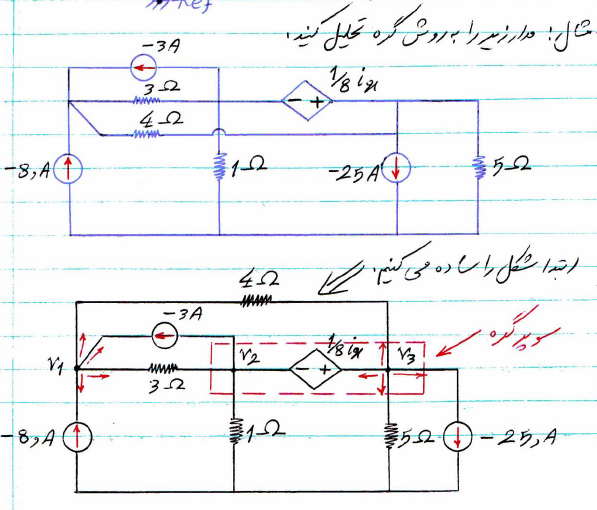 مثال: مدار زیر را به روش گره تحلیل کنید.
-3A
1/8 ix
3Ω
4Ω
-8,A
1Ω
-25A
5Ω
ابتدا شکل را ساده می کنیم.
4Ω
-3A
سوپر گره
1/8 ix
V1
V2
V3
3Ω
-8,A
1Ω
5Ω
-25,A